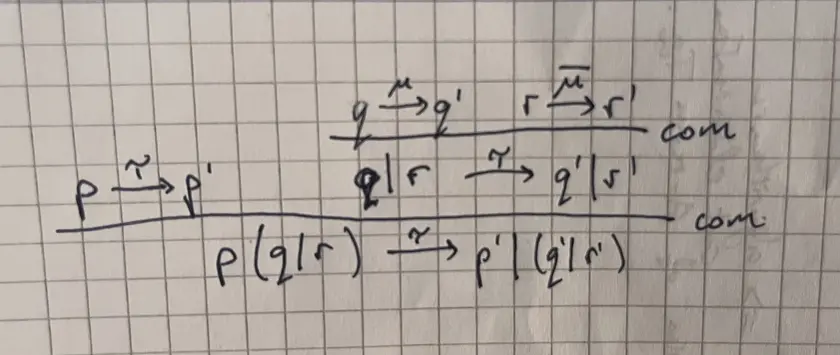 q —μ→ q' r —μ̅→ r' com
p —τ→ p' q | r —τ→ q' | r' com
p (q | r) —τ→ p' | (q' | r')